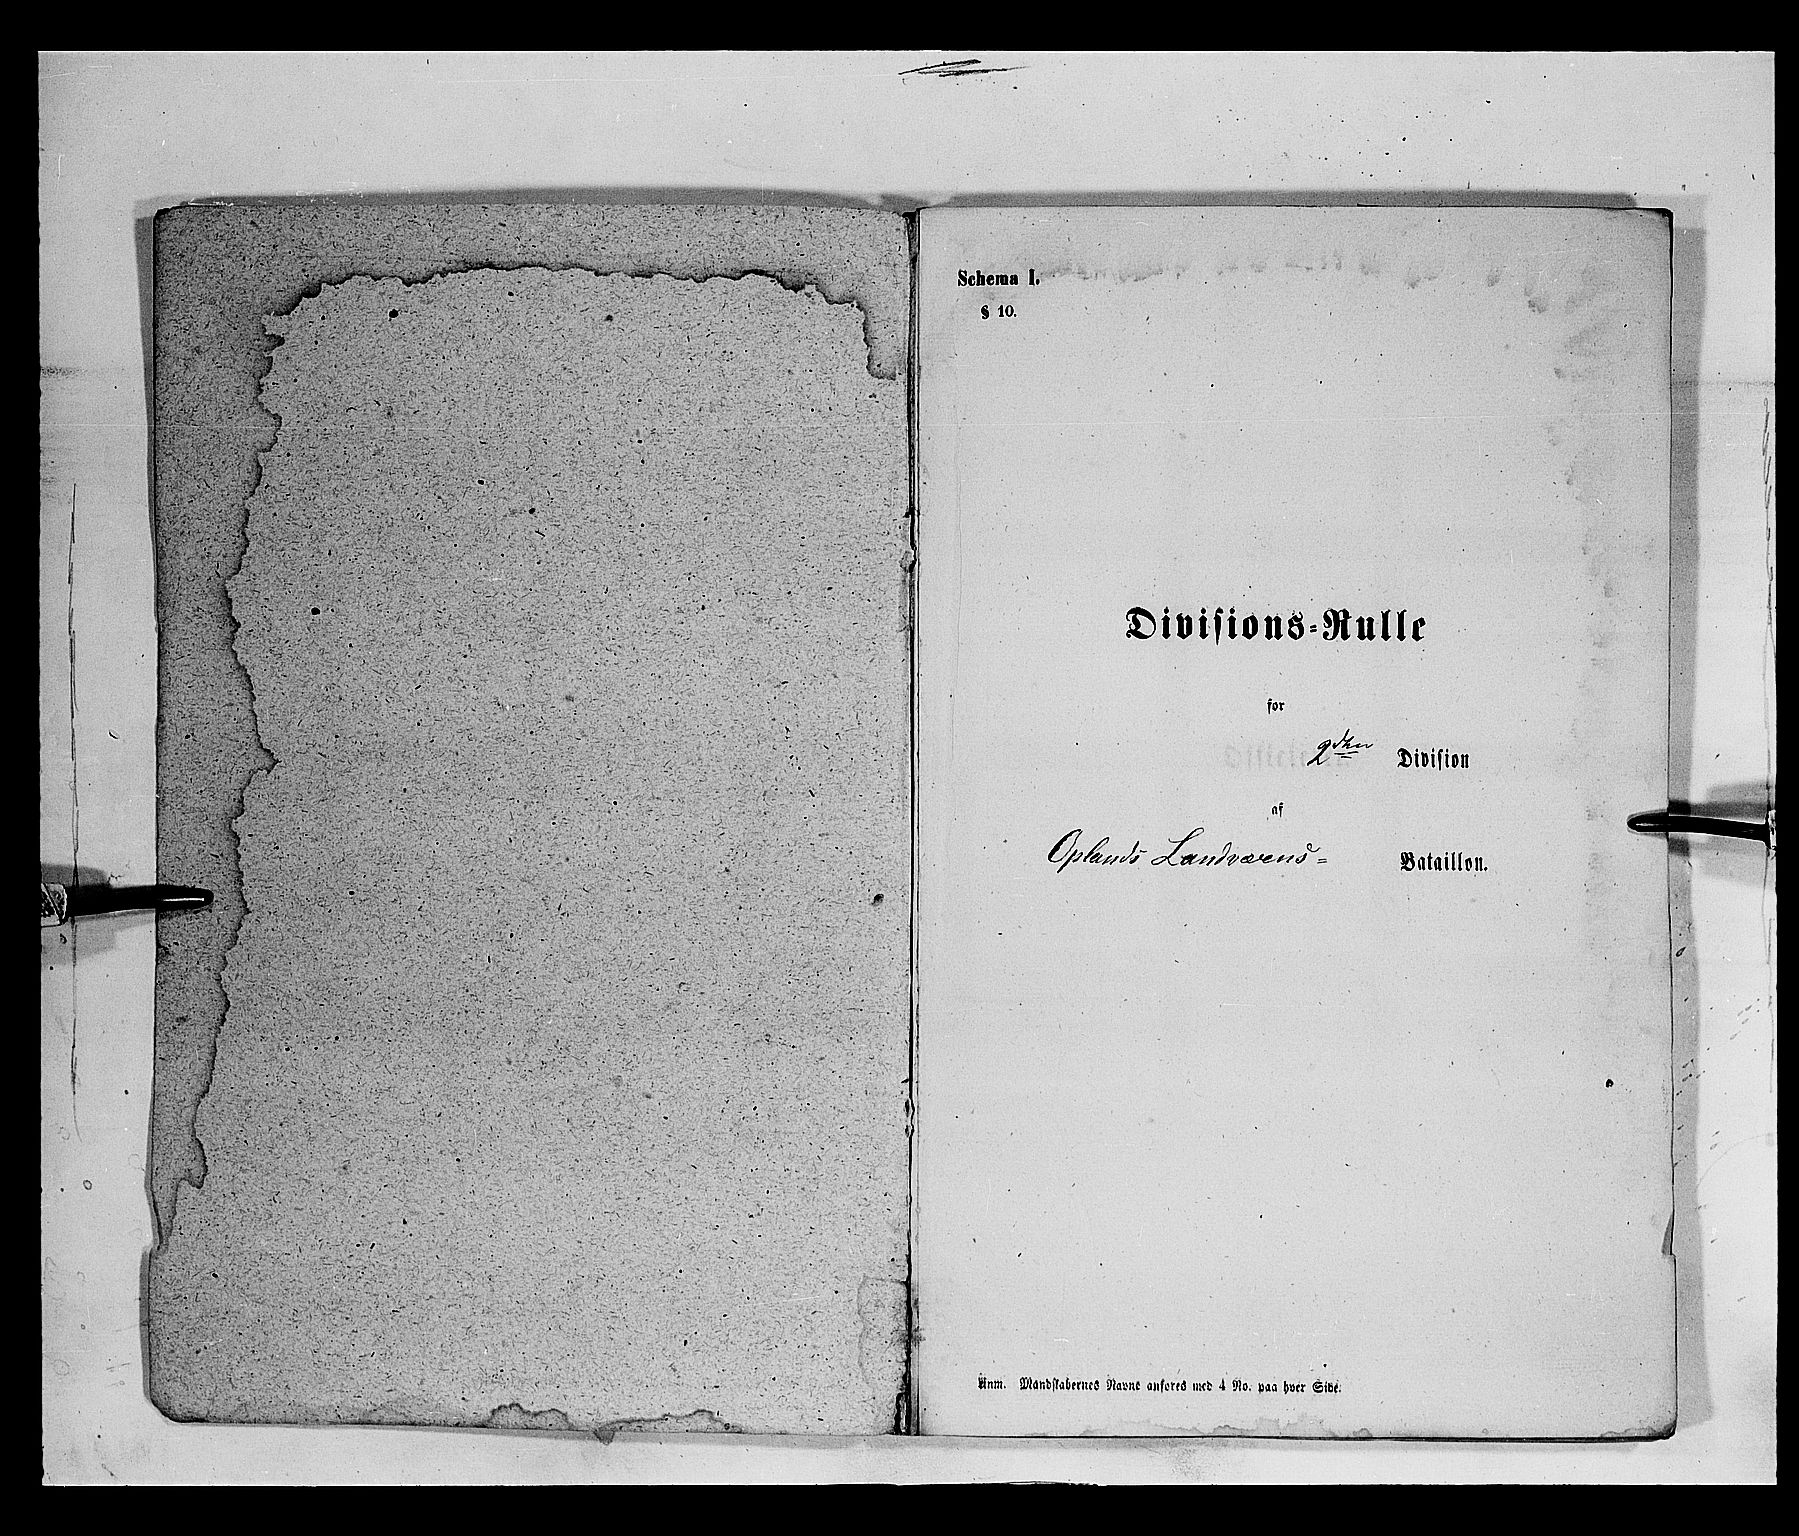 Schema I.
§ 10.
Divisions-Rulle
for
2den Division
af
Oplands Landværns- Bataillon.
Anm. Mandskabernes Navne anføres med 4 No. paa hver Side.